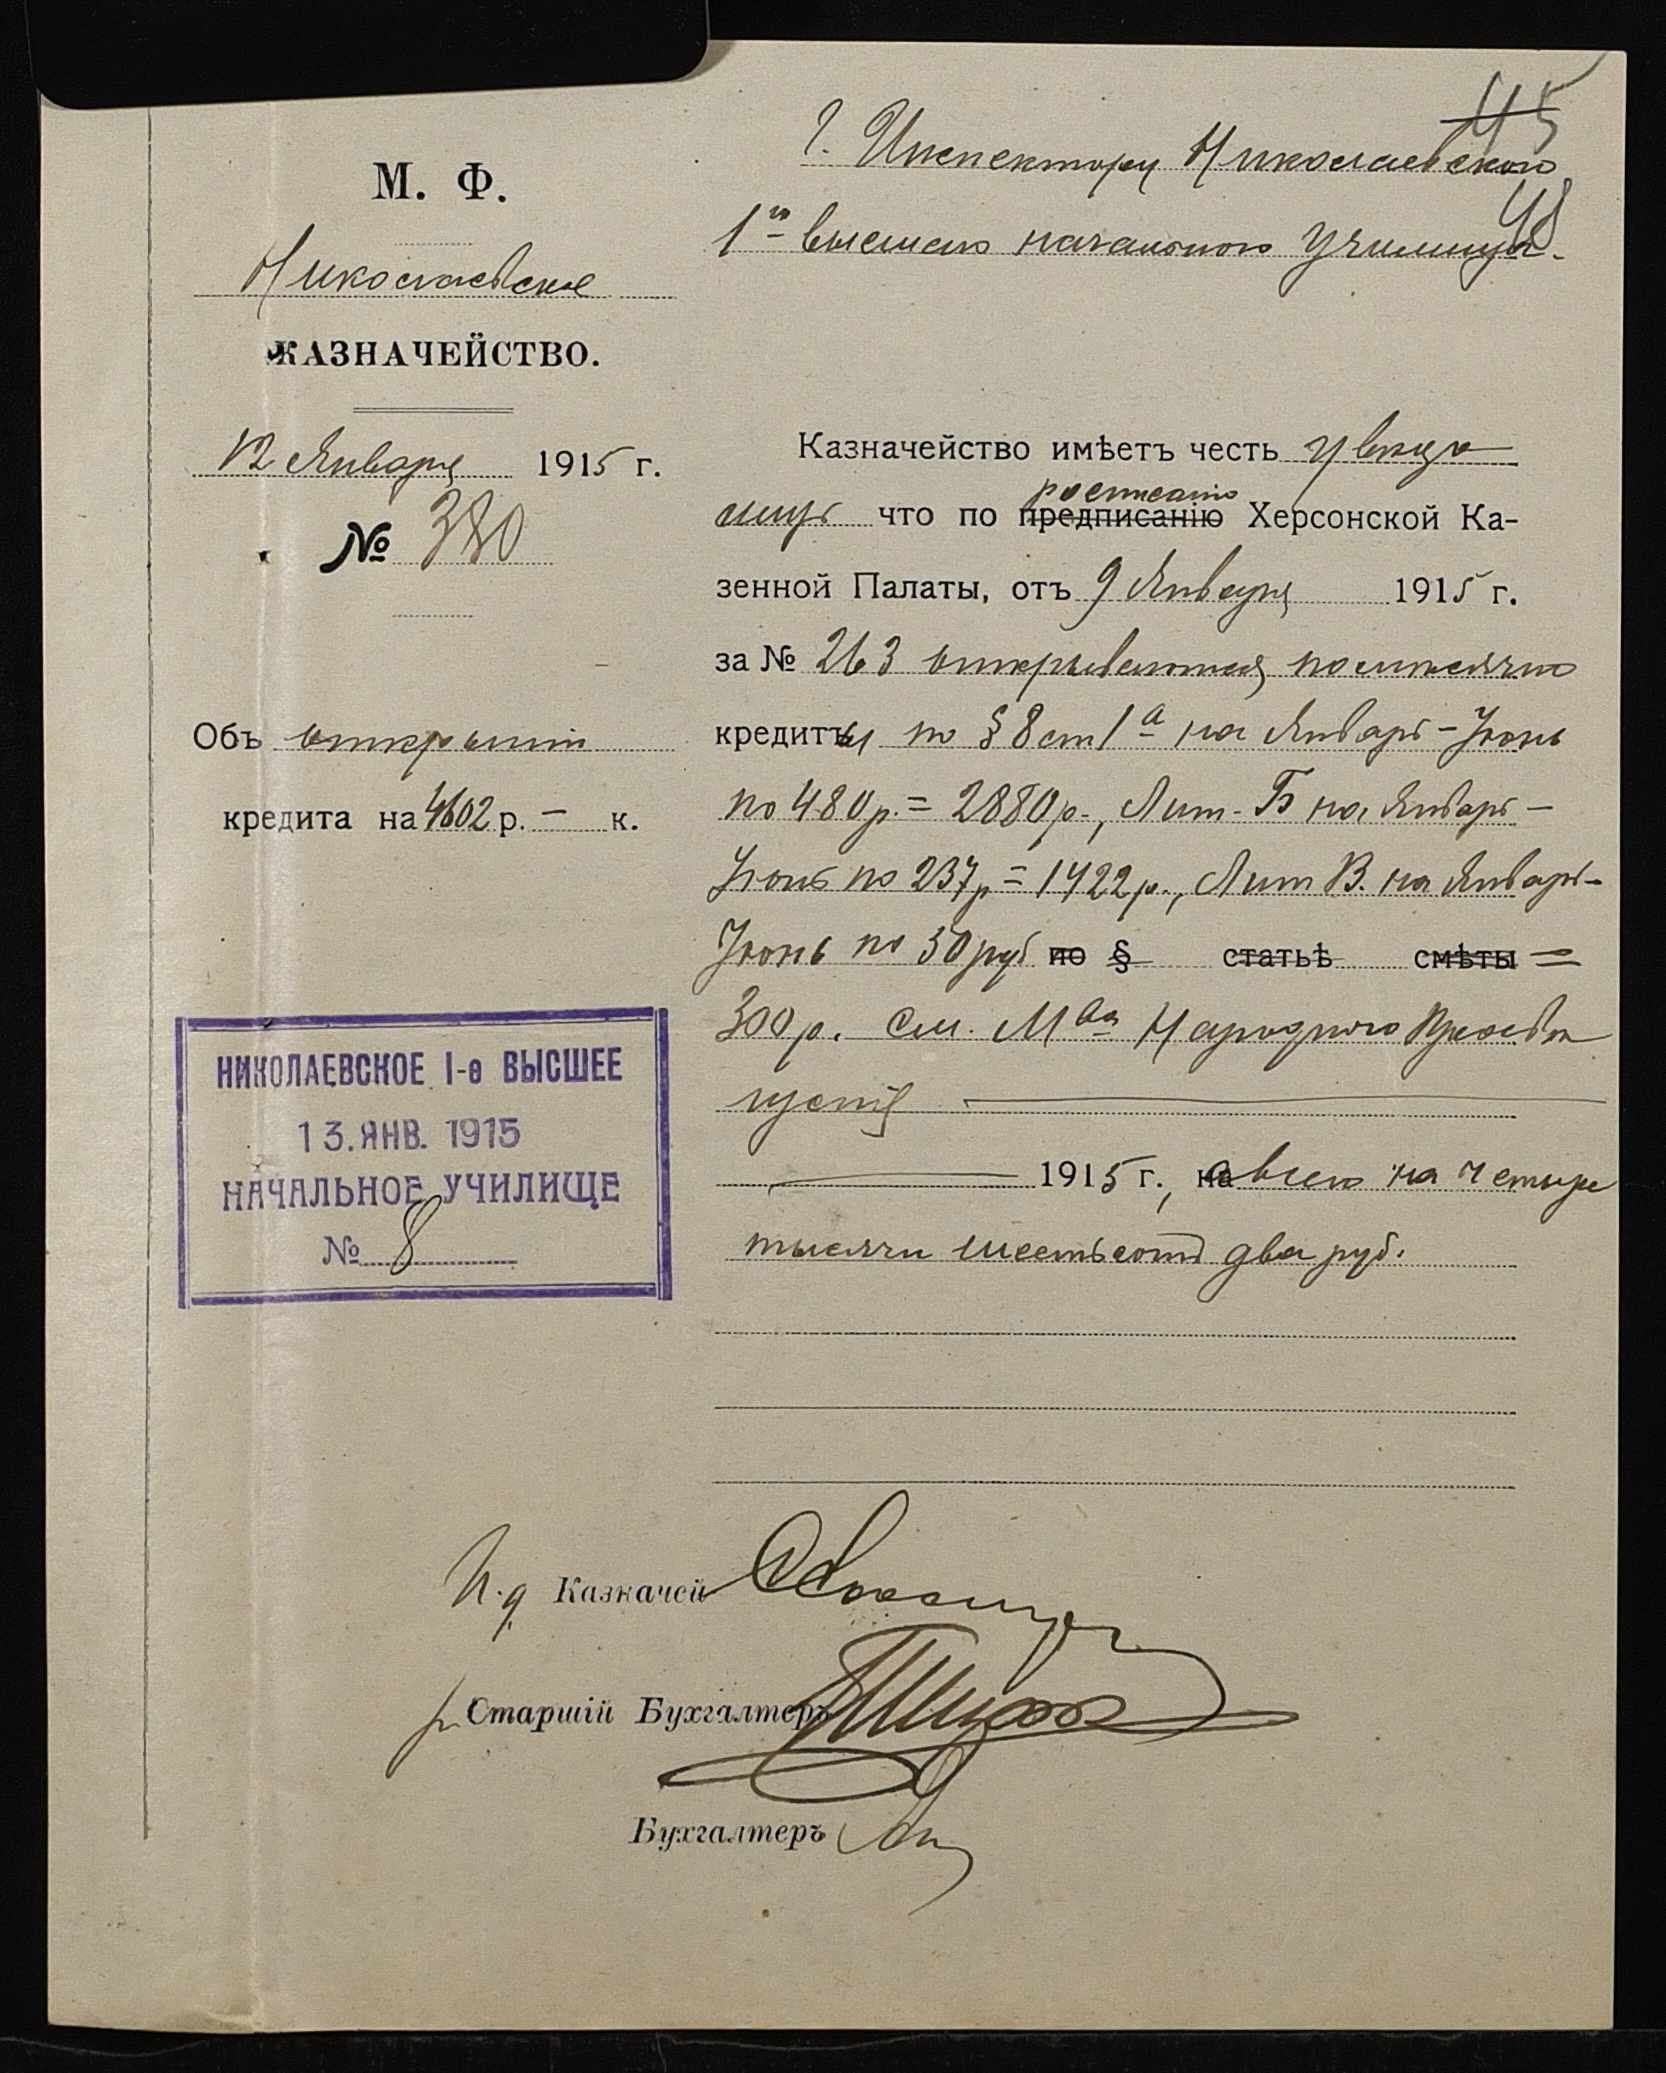 45
48
М. Ф.
Николаевское
КАЗНАЧЕЙСТВО.
12 Января 1915 г.
№ 380
Объ открытіи
кредита на 4602 р. – к.
НИКОЛАЕВСКОЕ I-е ВЫСШЕЕ
13. ЯНВ. 1915
НАЧАЛЬНОЕ УЧИЛИЩЕ
№ 8
Г. Инспектору Николаевскаго
1го высшаго начальнаго училища.
Казначейство имѣетъ честь увѣдо
мить что по предписанію росписанію Херсонской Ка-
зенной Палаты, отъ 9 Января 1915 г.
за № 263 открываются помѣсячно
кредиты по § 8 ст 1 а на Январь – Іюнь
по 480 р. = 2880 р., Лит. Б на Январь –
Іюнь по 237 р = 1422 р., Лит В. на Январь –
Іюнь по 50 руб по § статьѣ смѣты =
300 р. См. Мва Народнаго Просвѣ
щенія
1915 г., на а всего на четыре
тысячи шестьсотъ два руб.
И.д Казначей
Старшій Бухгалтеръ
Бухгалтеръ